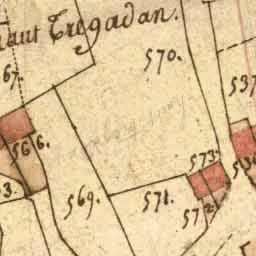 haut Tregadan.
570.
67.
537
566.
573.
536
3.
569.
571.
572.